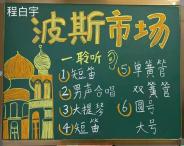 程白宇
波斯市场
一聆听
①短笛
②男声合唱
③大提琴
④短笛
⑤单簧管
双簧管
⑥圆号
大号